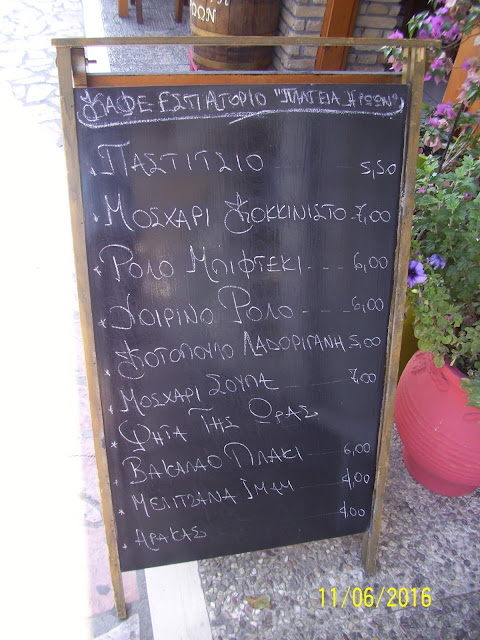 ΚΑΦΕ-ΕΣΤΙΑΤΟΡΙΟ "ΠΛΑΤΕΙΑ ΗΡΩΩΝ"
ΠΑΣΤΙΤΣΙΟ 5,50
ΜΟΣΧΑΡΙ ΚΟΚΚΙΝΙΣΤΟ 7,00
ΡΟΛΟ ΜΠΙΦΤΕΚΙ 6,00
ΧΟΙΡΙΝΟ ΡΟΛΟ 6,00
ΚΟΤΟΠΟΥΛΟ ΛΑΔΟΡΙΓΑΝΗ 5,00
ΜΟΣΧΑΡΙ ΣΟΥΠΑ 7,00
ΨΗΤΑ ΤΗΣ ΩΡΑΣ
ΒΑΚΑΛΑΟ ΠΛΑΚΙ 6,00
ΜΕΛΙΤΖΑΝΑ ΙΜΑΜ 4,00
ΑΡΑΚΑΣ 4,00
11/06/2016